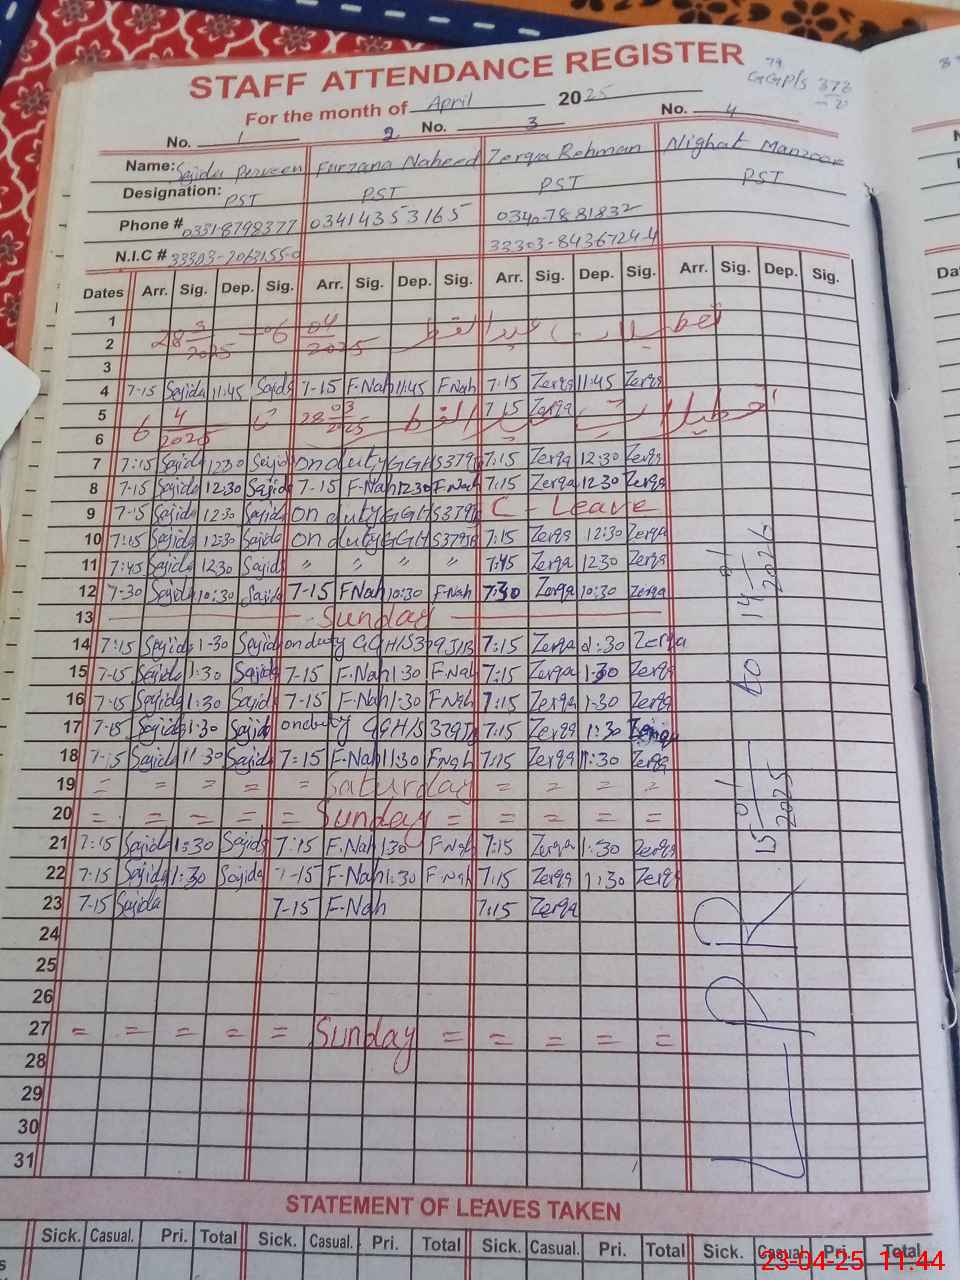 STAFF ATTENDANCE REGISTER
79
GGP/s 378
For the month of April 2025
No. 1 2 No. 3 No. 4
Name: Sajida Perveen Furzana Naheed Zerqa Rehman Nighat Manzoor
Designation: PST PST PST PST
Phone # 0331-8798377 03414353165 0340-7881832
N.I.C # 33303-2063155-0 33303-8436724-4
Dates Arr. Sig. Dep. Sig. Arr. Sig. Dep. Sig. Arr. Sig. Dep. Sig. Arr. Sig. Dep. Sig.
1
2 28 3/2025 06 04/2025 تعطیلات عید الفطر
3
4 7-15 Sajida 11:45 Sajida 7-15 F-Nah 11:45 F Nah 7:15 Zerqa 11:45 Zerqa
5 7 15 Zerqa
6 6 4/2025 تا 28 03/2025 تعطیلات عید الفطر
7 7:15 Sajida 12:30 Sajida on duty GGHS 379JB 7:15 Zerqa 12:30 Zerqa
8 7-15 Sajida 12:30 Sajida 7-15 F-Nah 12:30 F-Nah 7:15 Zerqa 12:30 Zerqa
9 7-15 Sajida 12:30 Sajida on duty GGHS 379JB C - Leave
10 7:15 Sajida 12:30 Sajida on duty GGHS 379JB 7:15 Zerqa 12:30 Zerqa
11 7:45 Sajida 12:30 Sajida " " " " 7:45 Zerqa 12:30 Zerqa
12 7-30 Sajida 10:30 Sajida 7-15 F Nah 10:30 F-Nah 7:30 Zerqa 10:30 Zerqa
13 Sunday
14 7:15 Sajida 1-30 Sajida on duty GGH/S 379 J/B 7:15 Zerqa 1:30 Zerqa
15 7-15 Sajida 1:30 Sajida 7-15 F-Nah 1:30 F-Nah 7:15 Zerqa 1:30 Zerqa
16 7-15 Sajida 1:30 Sajida 7-15 F-Nah 1-30 F-Nah 7:15 Zerqa 1-30 Zerqa
17 7-15 Sajida 1:30 Sajida on duty GGH/S 379JB 7:15 Zerqa 1:30 Zerqa
18 7-15 Sajida 11:30 Sajida 7:15 F-Nah 11:30 F-nah 7:15 Zerqa 11:30 Zerqa
19 = = = = = Saturday = = = =
20 = = = = = Sunday = = = = =
21 7:15 Sajida 1:30 Sajida 7:15 F-Nah 1:30 F-Nah 7:15 Zerqa 1:30 Zerqa
22 7:15 Sajida 1:30 Sajida 7-15 F-Nah 1:30 F-Nah 7:15 Zerqa 1:30 Zerqa
23 7-15 Sajida 7-15 F-Nah 7:15 Zerqa
24
25
26
27 = = = = = Sunday = = = = =
28
29
30
31
LPR 15 01/2025 to 14 01/2026
STATEMENT OF LEAVES TAKEN
Sick. Casual. Pri. Total Sick. Casual. Pri. Total Sick. Casual. Pri. Total Sick. Casual. Pri. Total
23-04-25 11:44